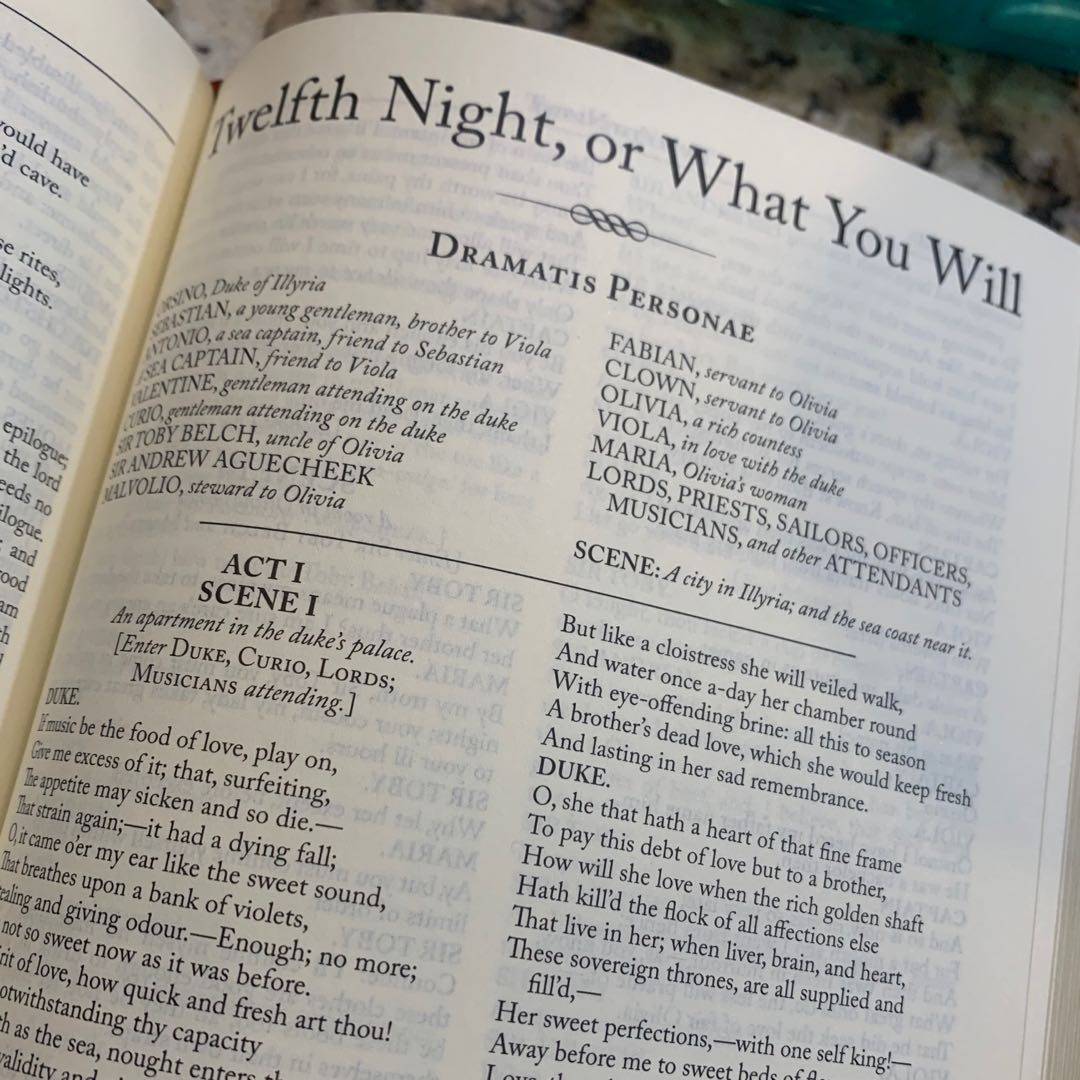 would have
'd cave.
se rites,
lights.
epilogue;
the lord
eeds no
ilogue.
; and
ood
am
th
Twelfth Night, or What You Will
DRAMATIS PERSONAE
ORSINO, Duke of Illyria
SEBASTIAN, a young gentleman, brother to Viola
ANTONIO, a sea captain, friend to Sebastian
A SEA CAPTAIN, friend to Viola
VALENTINE, gentleman attending on the duke
CURIO, gentleman attending on the duke
SIR TOBY BELCH, uncle of Olivia
SIR ANDREW AGUECHEEK
MALVOLIO, steward to Olivia
FABIAN, servant to Olivia
CLOWN, servant to Olivia
OLIVIA, a rich countess
VIOLA, in love with the duke
MARIA, Olivia's woman
LORDS, PRIESTS, SAILORS, OFFICERS,
MUSICIANS, and other ATTENDANTS
SCENE: A city in Illyria; and the sea coast near it.
ACT I
SCENE I
An apartment in the duke's palace.
[Enter DUKE, CURIO, LORDS;
MUSICIANS attending.]
DUKE.
If music be the food of love, play on,
Give me excess of it; that, surfeiting,
The appetite may sicken and so die.—
That strain again;—it had a dying fall;
O, it came o'er my ear like the sweet sound,
That breathes upon a bank of violets,
ealing and giving odour.—Enough; no more;
not so sweet now as it was before.
rit of love, how quick and fresh art thou!
otwithstanding thy capacity
th as the sea, nought enters th
validity and
But like a cloistress she will veiled walk,
And water once a-day her chamber round
With eye-offending brine: all this to season
A brother's dead love, which she would keep fresh
And lasting in her sad remembrance.
DUKE.
O, she that hath a heart of that fine frame
To pay this debt of love but to a brother,
How will she love when the rich golden shaft
Hath kill'd the flock of all affections else
That live in her; when liver, brain, and heart,
These sovereign thrones, are all supplied and
fill'd,—
Her sweet perfections,—with one self king!—
Away before me to sweet beds of